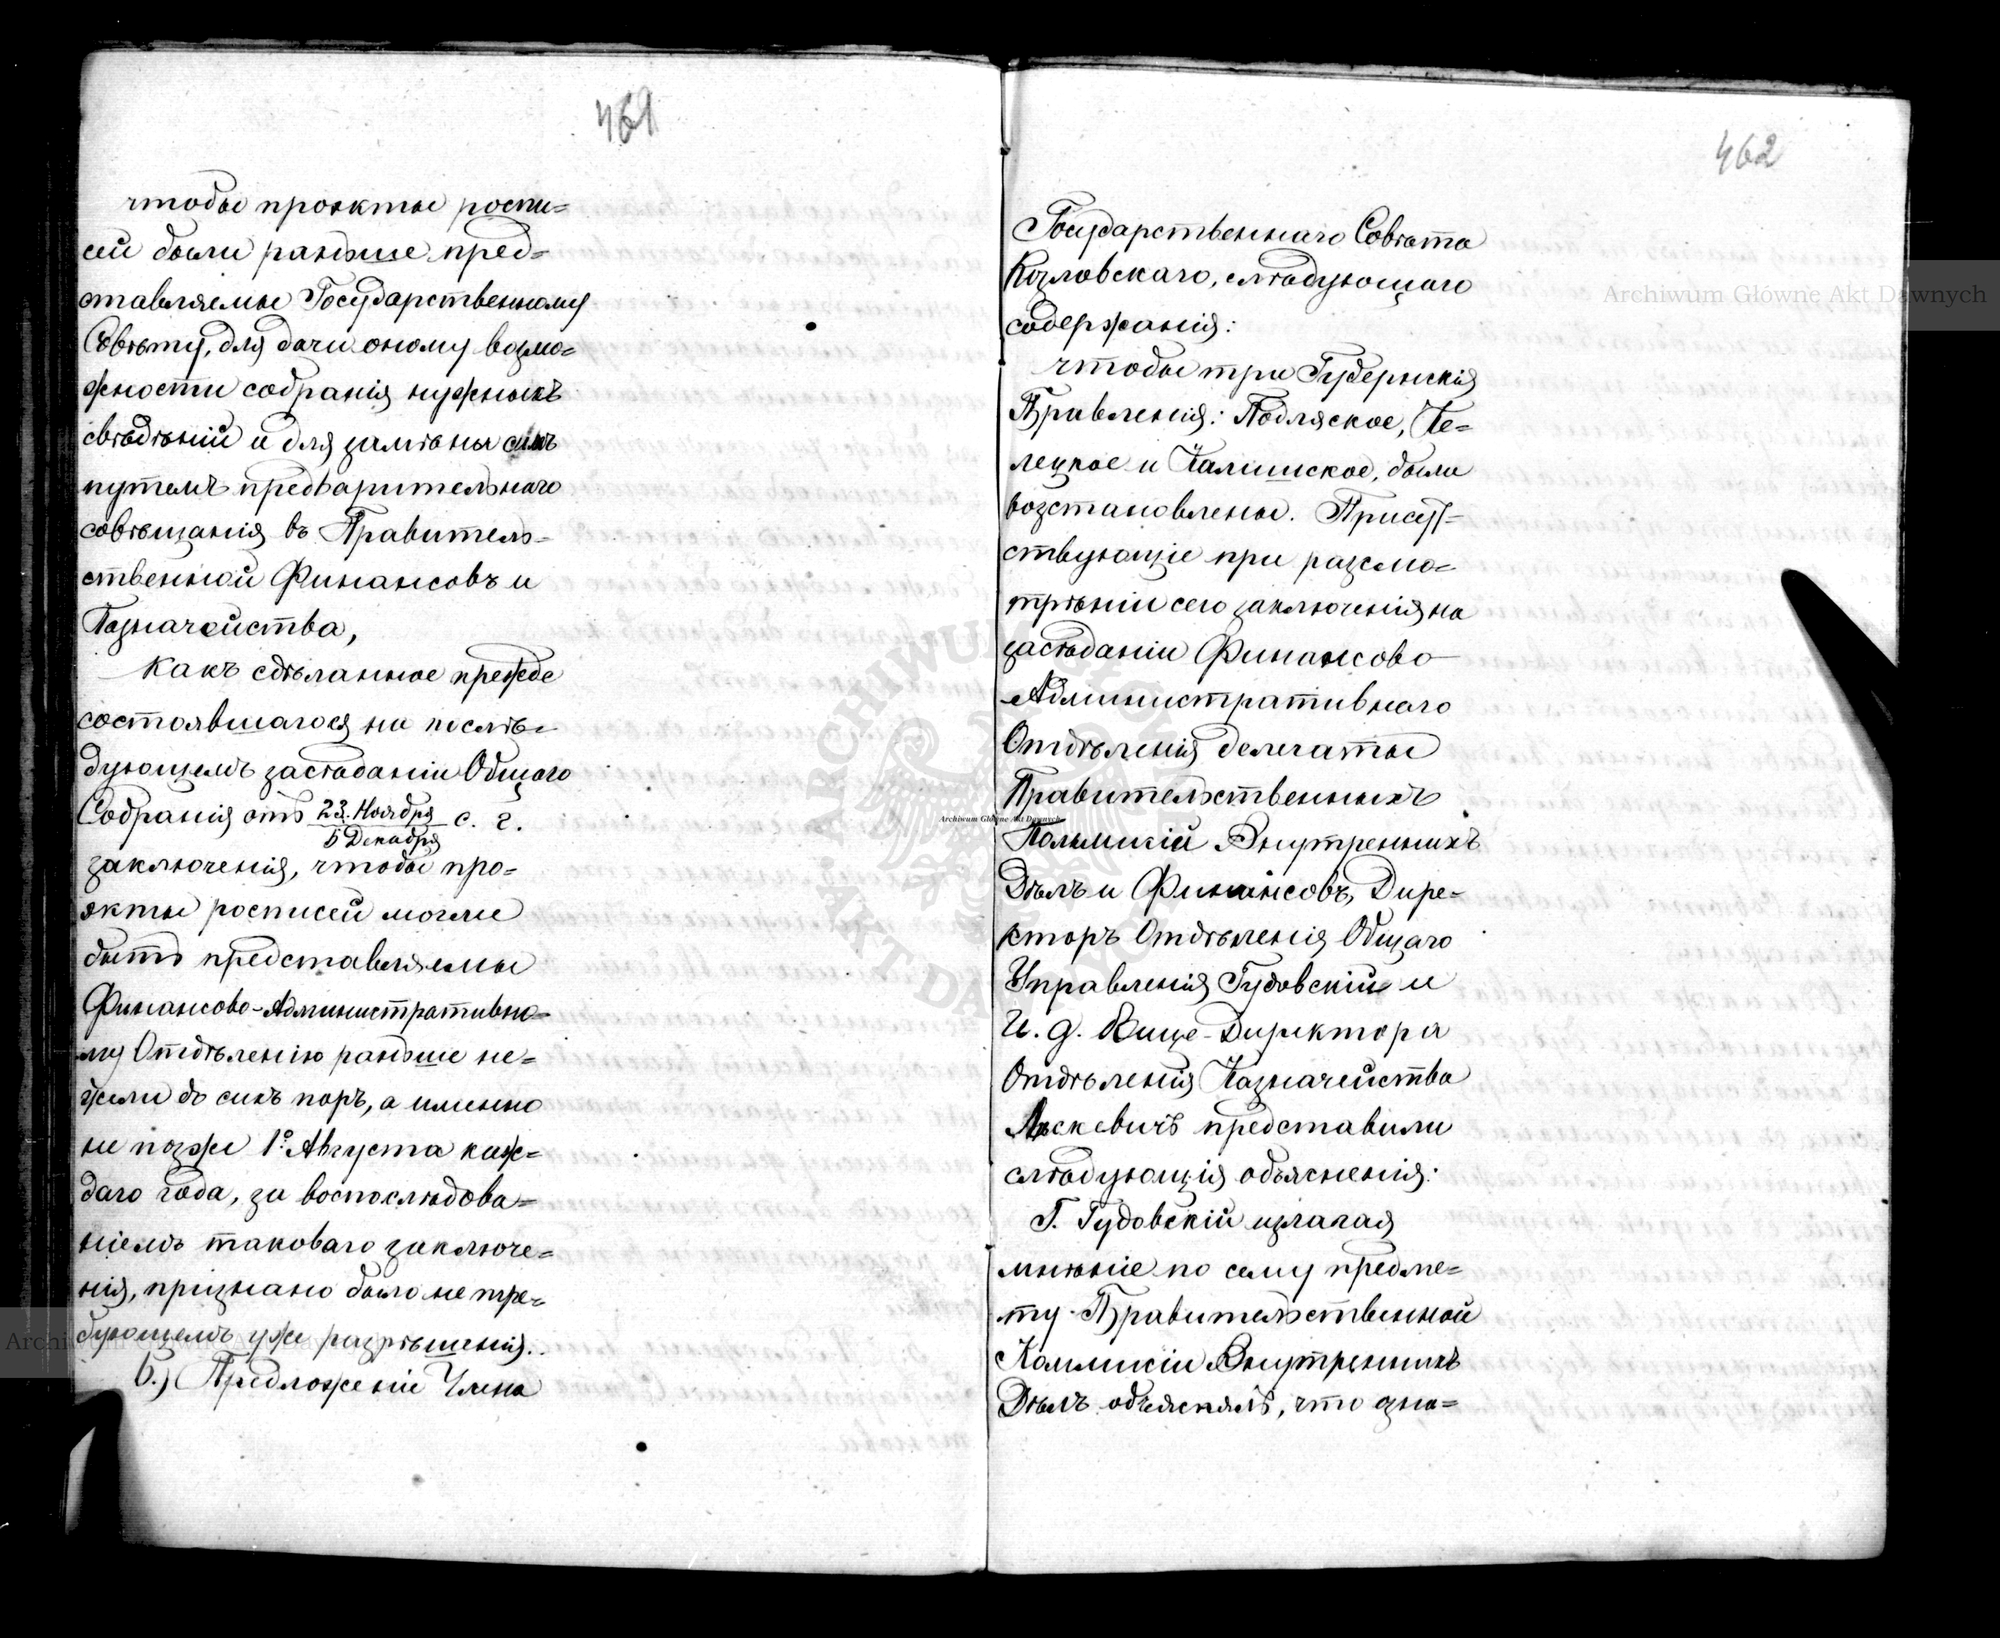 461
чтобы проэкты роспи=
сей были раньше пред=
ставляемы Государственному
Совѣту, для дачи оному возмо=
жности собранія нужныхъ
свѣдѣній и для замѣны сихъ
путемъ предварительнаго
совѣщанія въ Правитель=
ственной Финансовъ и
Казначейства,
какъ сдѣланное прежде
состоявшагося на послѣ=
дующемъ засѣданіи Общаго
Собранія отъ 23. Ноября / 5 Декабря с. г.
заключенія, чтобы про=
экты росписей могли
быть представляемы
Финансово-Административно=
му Отдѣленію раньше не=
жели до сихъ поръ, а именно
не позже 1º Августа каж=
даго года, за воспослѣдова=
ніемъ таковаго заключе=
нія, признано было не тре=
бующемъ уже разрѣшенія.
б.) Предложеніе Члена
462
Государственнаго Совѣта
Козловскаго, слѣдующаго
содержанія:
чтобы три Губернскія
Правленія: Подляское, Ке=
лецкое и Калишское, были
возстановлены. Присут=
ствующіе при разсмо=
трѣніи сего заключенія на
засѣданіи Финансово
Административнаго
Отдѣленія делегаты
Правительственныхъ
Коммисій Внутреннихъ
Дѣлъ и Финансовъ, Дире=
кторъ Отдѣленія Общаго
Управленія Гудовскій и
И. д. Вице-Директора
Отдѣленія Казначейства
представили
слѣдующія объясненія:
Г. Гудовскій излагая
мнѣніе по сему предме=
ту Правительственной
Коммисіи Внутреннихъ
Дѣлъ объяснялъ, что зна=
Archiwum Główne Akt Dawnych
Archiwum Główne Akt Dawnych